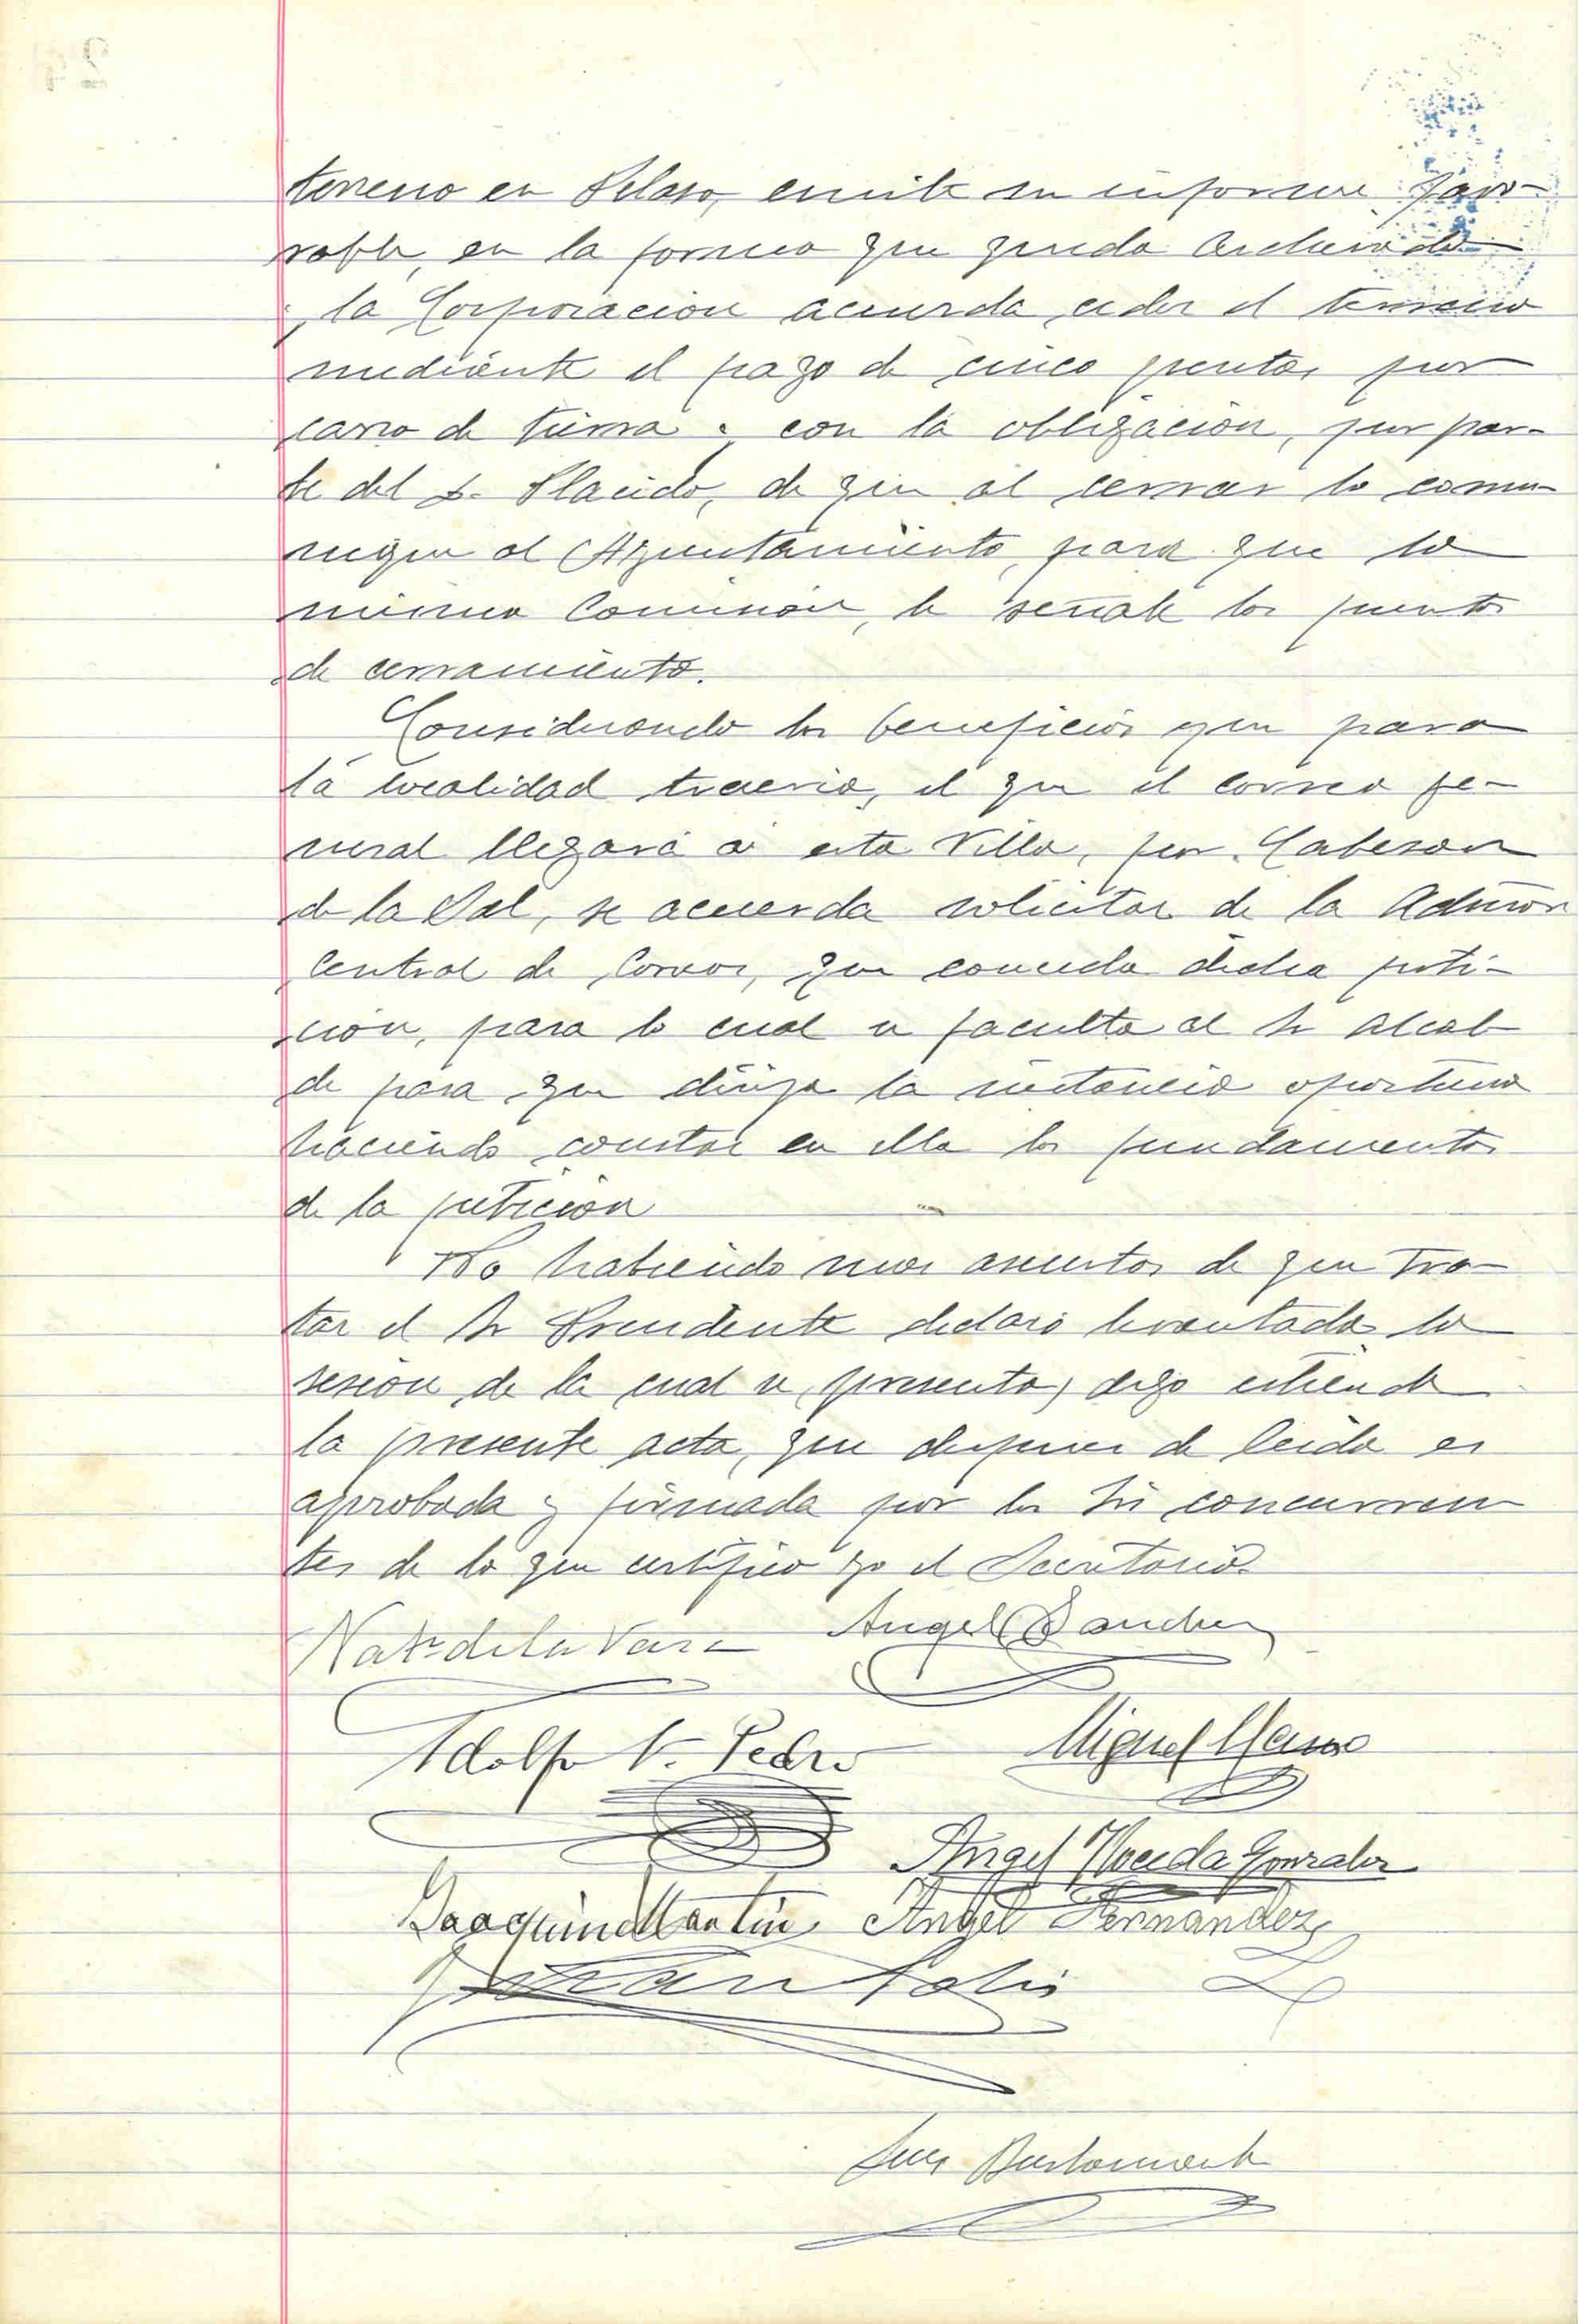 terreno en Selaso, emite su informe favo-
rable, en la forma que queda archivada
la Corporacion acuerda ceder el terreno
mediante el pago de cinco pesetas por
carro de tierra y con la obligacion, por par-
te del S. Placido, de que al cerrar lo comu-
nique al Ayuntamiento, para que la
misma Comision, le señale los puntos
de cerramiento.
Considerando los beneficios que para
la localidad traeria, el que el correo ge-
neral llegará a esta Villa, por Cabezon
de la Sal, se acuerda solicitar de la Admon
Central de Correos, que conceda dicha peti-
cion, para lo cual se faculta al Sr Alcal
de para que dirija la instancia oportuna
haciendo constar en ella los fundamentos
de la peticion
No habiendo mas asuntos de que tra-
tar el Sr Presidente declaró levantada la
sesion de la cual se presenta, digo estiende
la presente acta, que despues de leida es
aprobada y firmada por los Srs concurren
tes de lo que certifico yo el Secretario
Nat. de la Vara Angel Sanchez
Adolfo V. Pedro Miguel
Angel Gonzalez
Joaquin Martin Angel Fernandez
Juan Solis
Luis Bustamante